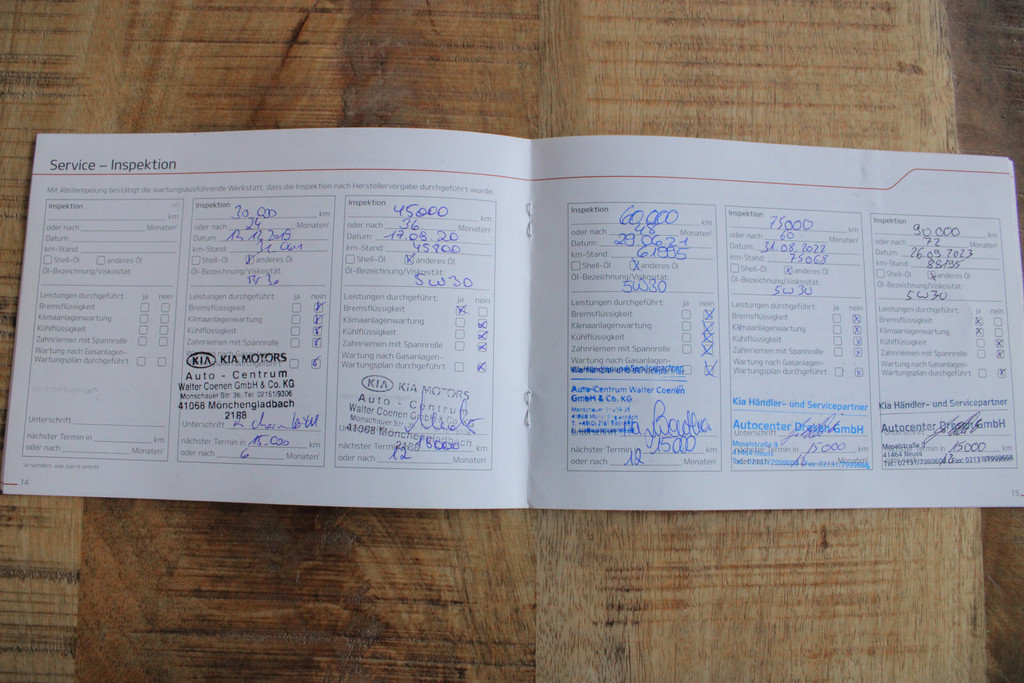 Service – Inspektion
Mit Abstempelung bestätigt die wartungsausführende Werkstatt, dass die Inspektion nach Herstellervorgabe durchgeführt wurde.
Inspektion
km
oder nach Monaten¹
Datum:
km-Stand:
Shell-Öl anderes Öl
Öl-Bezeichnung/Viskosität:
Leistungen durchgeführt: ja nein
Bremsflüssigkeit
Klimaanlagenwartung
Kühlflüssigkeit
Zahnriemen mit Spannrolle
Wartung nach Gasanlagen-
Wartungsplan durchgeführt
Unterschrift
nächster Termin in km
oder nach Monaten¹
Inspektion
30.000 km
oder nach 24 Monaten¹
Datum:
km-Stand:
Shell-Öl anderes Öl
Öl-Bezeichnung/Viskosität:
Leistungen durchgeführt: ja nein
Bremsflüssigkeit
Klimaanlagenwartung
Kühlflüssigkeit
Zahnriemen mit Spannrolle
KIA KIA MOTORS
Auto - Centrum
Walter Coenen GmbH & Co. KG
Monschauer Str. 36, Tel. 02161/9306
41068 Mönchengladbach
2188
Unterschrift
nächster Termin in 15.000 km
oder nach 6 Monaten¹
Inspektion
45000 km
oder nach 36 Monaten¹
Datum: 17.08.20
km-Stand: 45200
Shell-Öl anderes Öl
Öl-Bezeichnung/Viskosität:
5W30
Leistungen durchgeführt: ja nein
Bremsflüssigkeit
Klimaanlagenwartung
Kühlflüssigkeit
Zahnriemen mit Spannrolle
Wartung nach Gasanlagen-
Wartungsplan durchgeführt
KIA KIA MOTORS
Auto - Centrum
Walter Coenen GmbH
Monschauer Str.
41068 Mönchengladbach
2188
nächster Termin in 15000 km
oder nach 12 Monaten¹
14
Inspektion
60.000 km
oder nach 48 Monaten¹
Datum: 29.06.21
km-Stand: 61995
Shell-Öl anderes Öl
Öl-Bezeichnung/Viskosität:
5W30
Leistungen durchgeführt: ja nein
Bremsflüssigkeit
Klimaanlagenwartung
Kühlflüssigkeit
Zahnriemen mit Spannrolle
Wartung nach Gasanlagen-
Auto-Centrum Walter Coenen
GmbH & Co. KG
15000
oder nach 12 Monaten¹
Inspektion
75000 km
oder nach 60 Monaten¹
Datum: 31.08.2022
km-Stand: 75068
Shell-Öl anderes Öl
Öl-Bezeichnung/Viskosität:
5W30
Leistungen durchgeführt: ja nein
Bremsflüssigkeit
Klimaanlagenwartung
Kühlflüssigkeit
Zahnriemen mit Spannrolle
Wartung nach Gasanlagen-
Wartungsplan durchgeführt
Kia Händler- und Servicepartner
Autocenter Dresen GmbH
Moselstraße 9
41464 Neuss
15000 km
Inspektion
90000 km
oder nach 72 Monaten¹
Datum: 26.09.2023
km-Stand: 88195
Shell-Öl anderes Öl
Öl-Bezeichnung/Viskosität:
5W30
Leistungen durchgeführt: ja nein
Bremsflüssigkeit
Klimaanlagenwartung
Kühlflüssigkeit
Zahnriemen mit Spannrolle
Wartung nach Gasanlagen-
Wartungsplan durchgeführt
Kia Händler- und Servicepartner
Autocenter Dresen GmbH
Moselstraße 9
41464 Neuss
15000 km
15